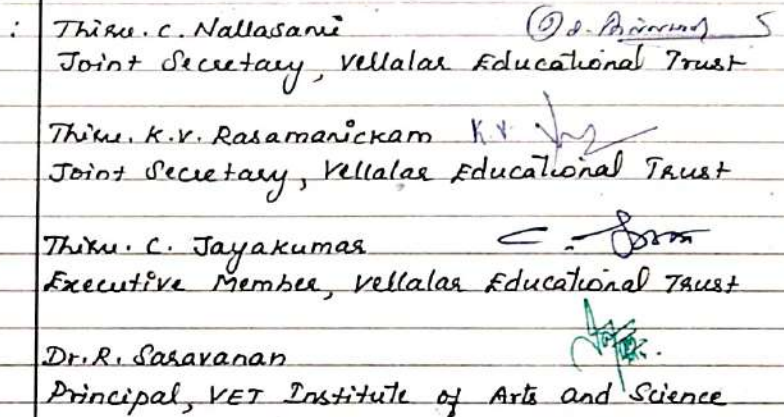 : Thiru. C. Nallasami
Joint Secretary, Vellalar Educational Trust
Thiru. K.V. Rasamanickam K.V.
Joint Secretary, Vellalar Educational Trust
Thiru. C. Jayakumar C.
Executive Member, Vellalar Educational Trust
Dr. R. Saravanan
Principal, VET Institute of Arts and Science